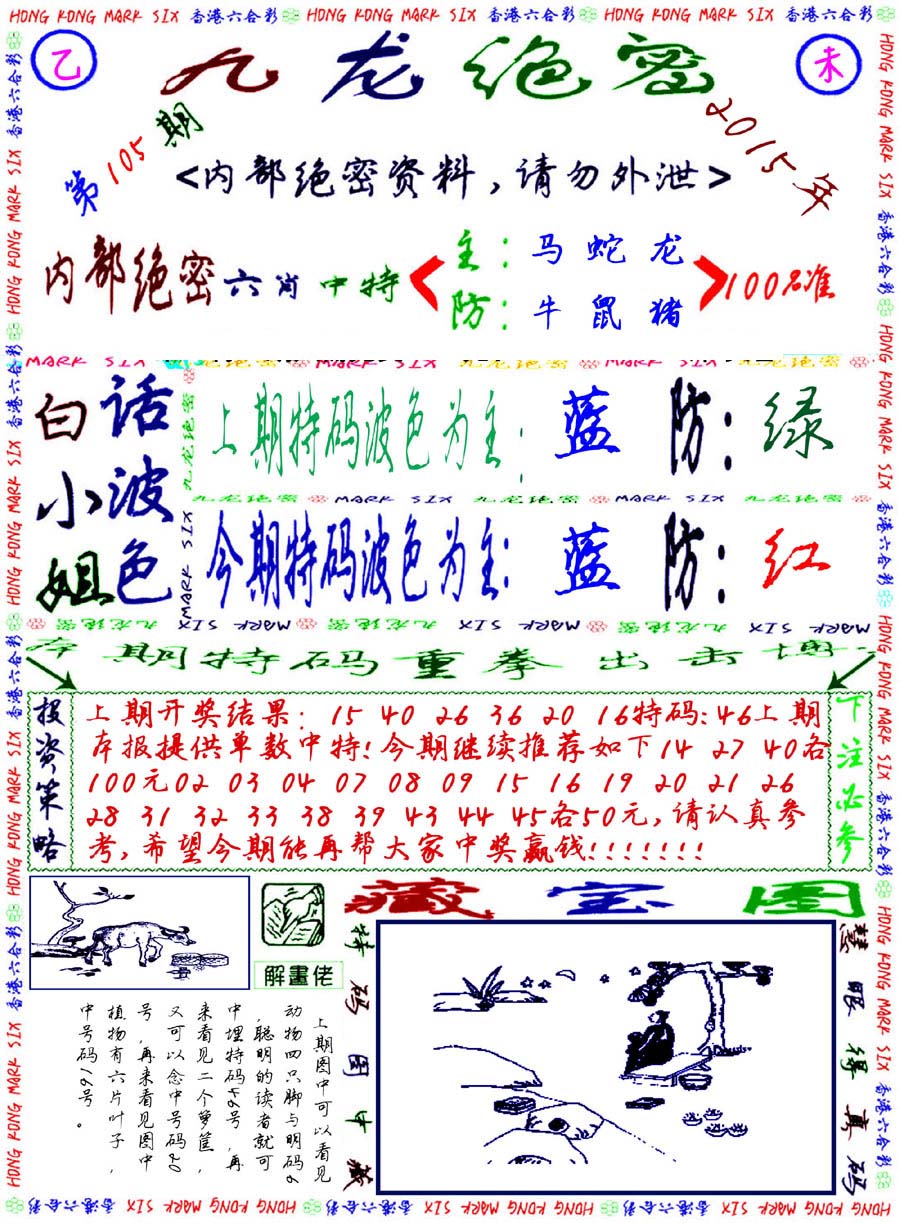 HONG KONG MARK SIX 香港六合彩 HONG KONG MARK SIX 香港六合彩 HONG KONG MARK SIX 香港六合彩
乙
九龙绝密
未
第105期
2015年
<内部绝密资料,请勿外泄>
内部绝密六肖中特
主:马蛇龙
防:牛鼠猪
100%准
MARK SIX 九龙绝密 MARK SIX 九龙绝密 MARK SIX 九龙绝密
白话
小波
姐色
上期特码波色为主:蓝 防:绿
九龙绝密 MARK SIX 九龙绝密 MARK SIX 九龙绝密
今期特码波色为主:蓝 防:红
九龙绝密 MARK SIX 九龙绝密 MARK SIX 九龙绝密 MARK SIX
本期特码重拳出击博
投资策略
上期开奖结果:15 40 26 36 20 16特码:46上期
本报提供单数中特!今期继续推荐如下14 27 40各
100元02 03 04 07 08 09 15 16 19 20 21 26
28 31 32 33 38 39 43 44 45各50元,请认真参
考,希望今期能再帮大家中奖赢钱!!!!!!!
下注必参
藏宝图
解畫佬
上期图中可以看见
动物四只脚与明码6
,聪明的读者就可
中埋特码46号,再
来看见二个萝筐,
又可以念中号码20
号,再来看见图中
植物有六片叶子,
中号码16号。
特码图中藏
慧眼得真码
HONG KONG MARK SIX 香港六合彩 HONG KONG MARK SIX 香港六合彩 HONG KONG MARK SIX 香港六合彩